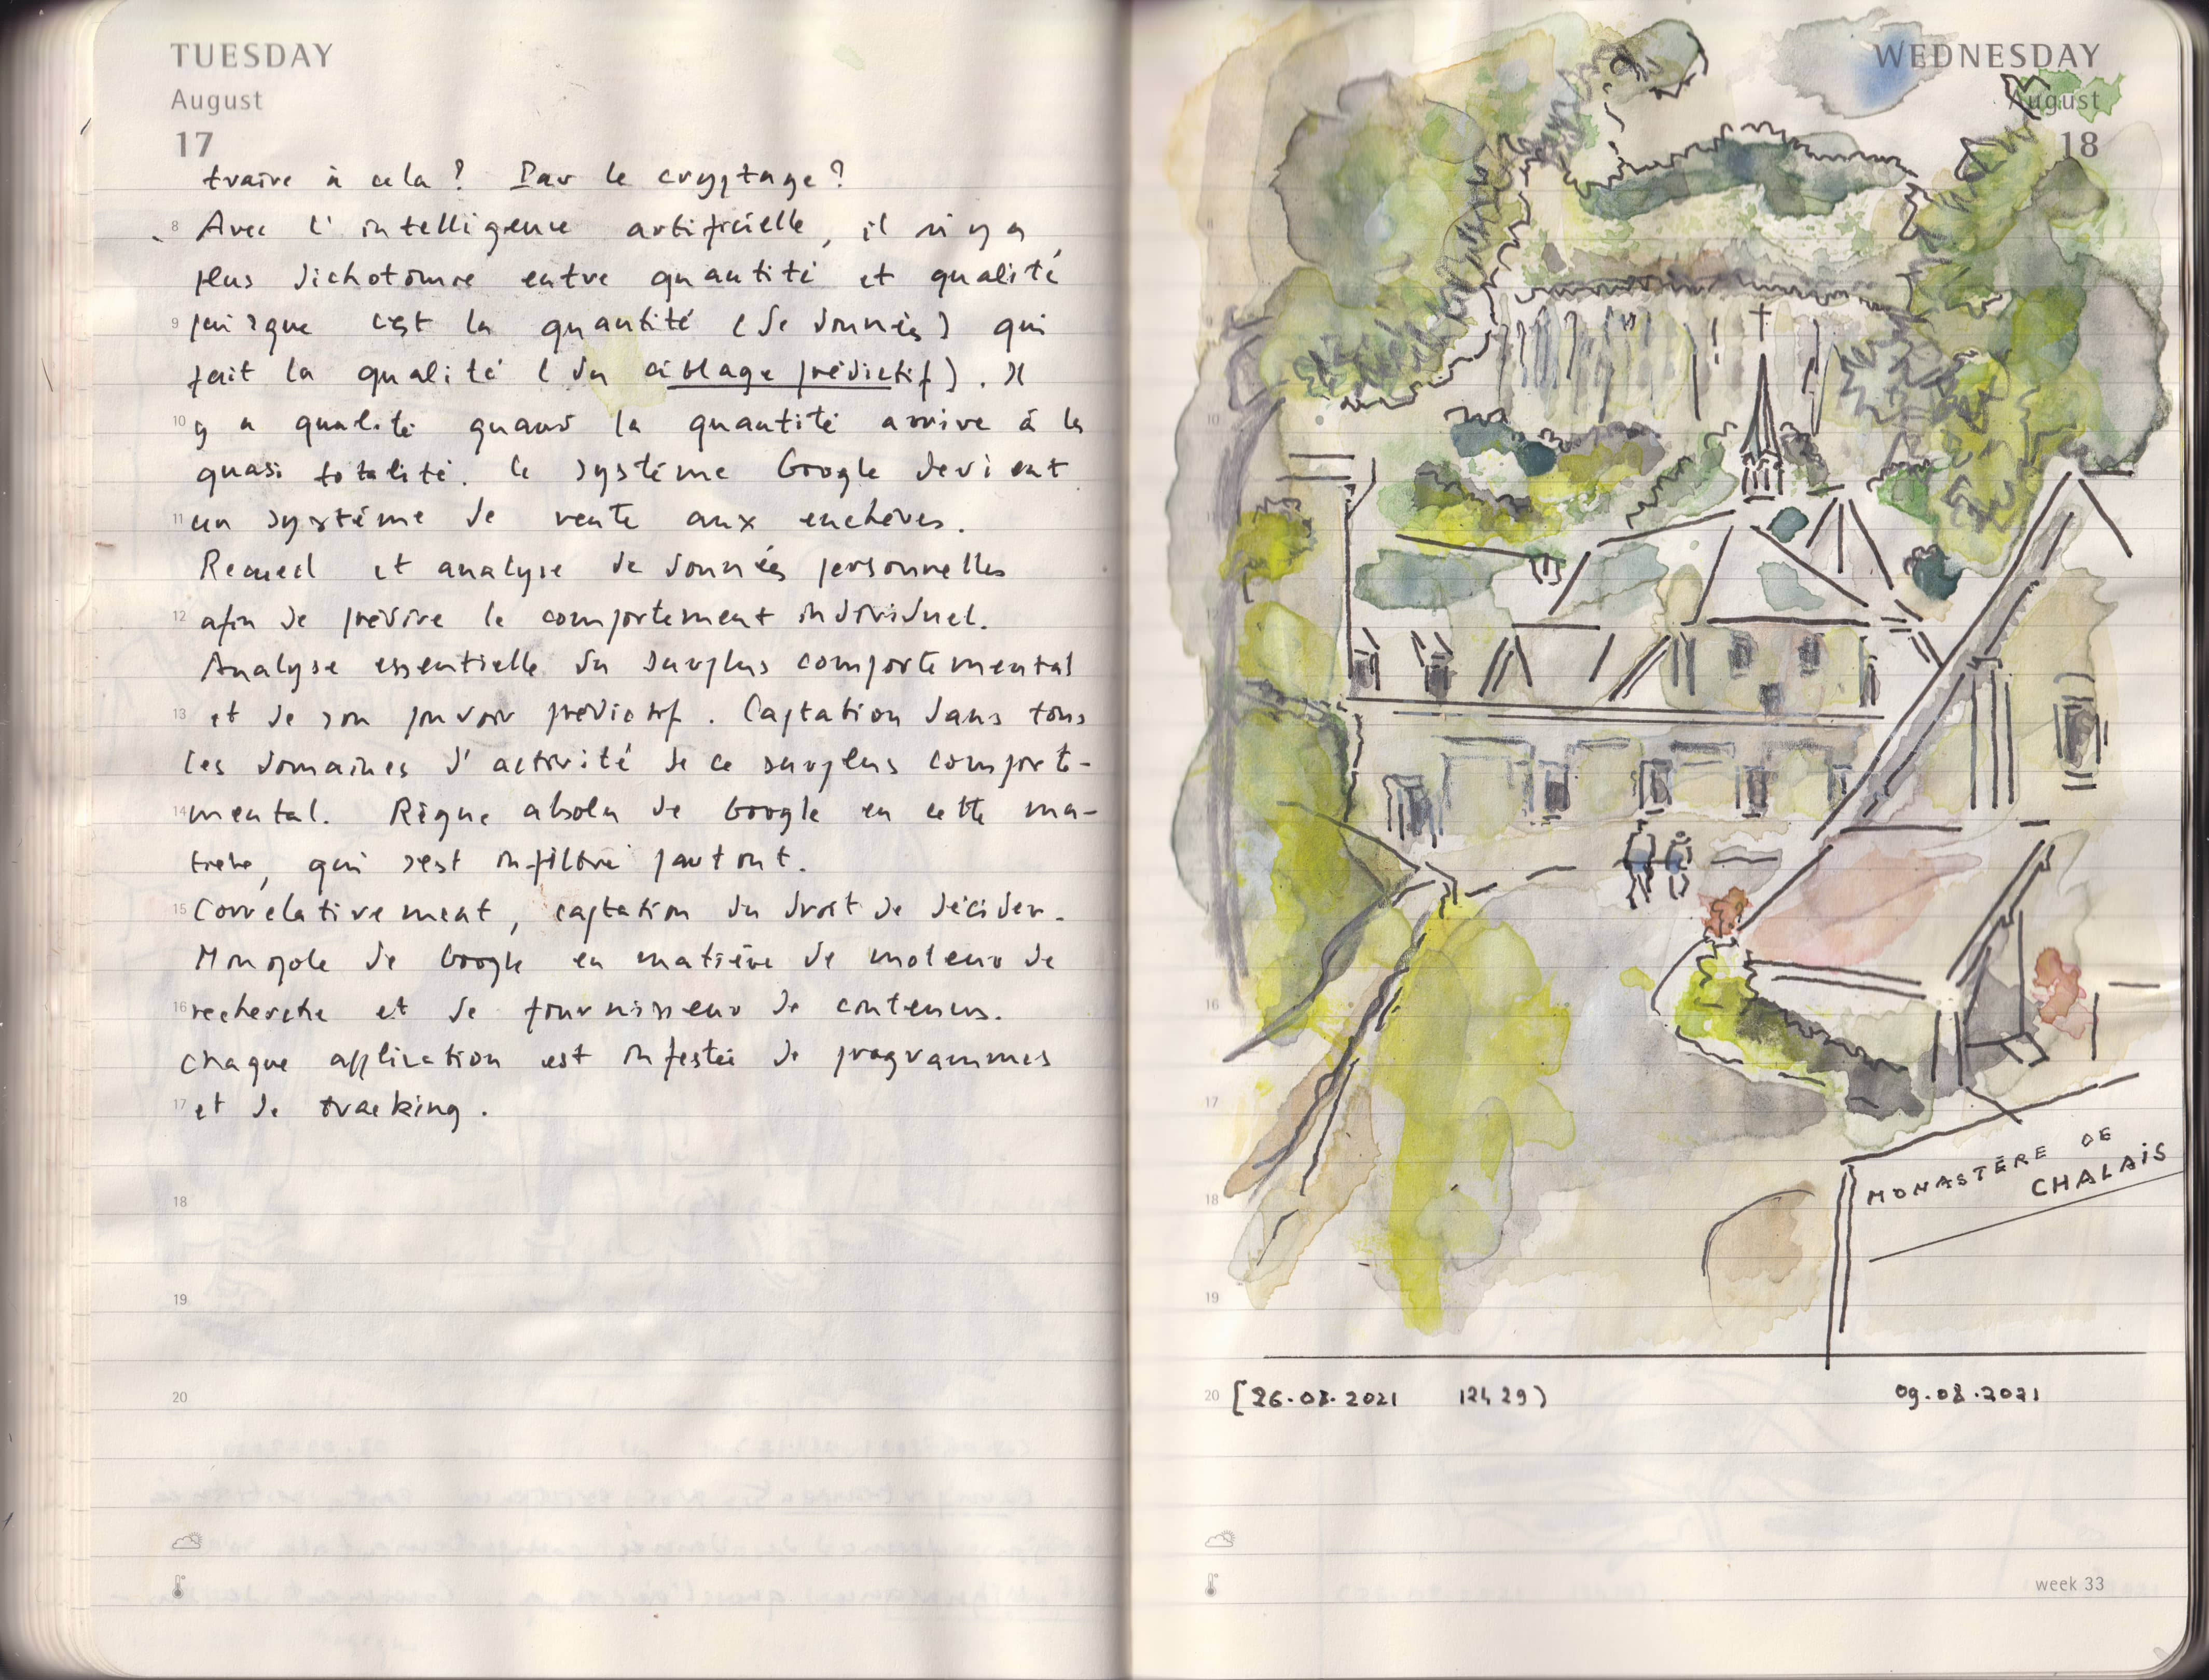 TUESDAY
August
17
traire à cela ? Par le cryptage ?
8 Avec l'intelligence artificielle, il n'y a
plus dichotomie entre quantité et qualité
9 puisque c'est la quantité (de données) qui
fait la qualité (du ciblage prédictif). Il
10 y a qualité quand la quantité arrive à la
quasi totalité. Le système Google devient
11 un système de vente aux enchères.
Recueil et analyse de données personnelles
12 afin de prédire le comportement individuel.
Analyse essentielle du surplus comportemental
13 et de son pouvoir prédictif. Captation dans tous
les domaines d'activité de ce surplus comporte-
14 mental. Règne absolu de Google en cette ma-
tière, qui s'est infiltré partout.
15 Corrélativement, captation du droit de décider.
Monopole de Google en matière de moteur de
16 recherche et de fournisseur de contenus.
Chaque application est infestée de programmes
17 et de tracking.
18
19
20
WEDNESDAY
August
18
8
9
10
11
12
13
14
15
16
17
18
19
MONASTÈRE DE
CHALAIS
20 [26.08.2021 12h29) 09.08.2021
week 33